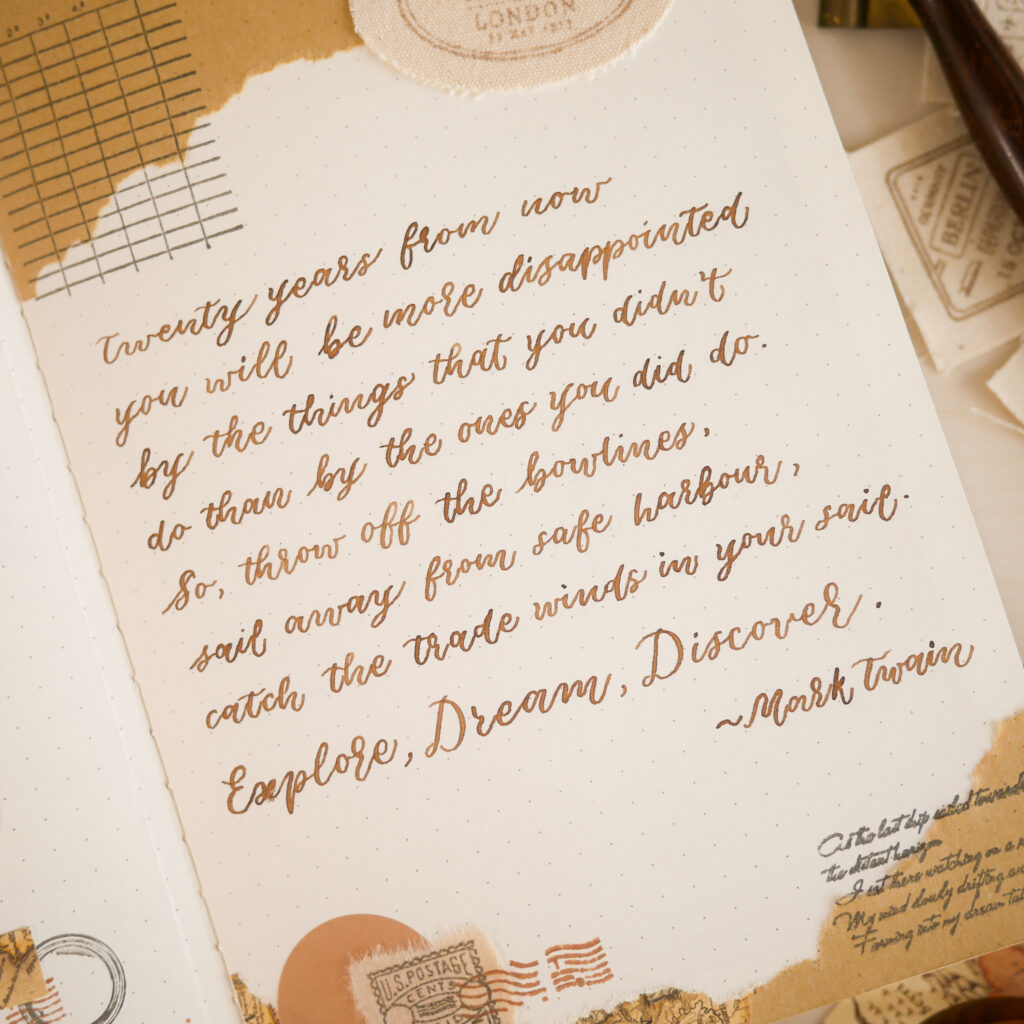 2ª 3ª 4ª
LONDON
Twenty years from now
you will be more disappointed
by the things that you didn't
do than by the ones you did do.
So, throw off the bowlines,
sail away from safe harbour,
catch the trade winds in your sail.
Explore, Dream, Discover.
~Mark Twain
GERMANY
BERLIN
As the last ship sailed towards
the distant horizon
I sat there watching on a
My mind slowly drifting
Forming into my dream
U.S. POSTAGE
CENTS